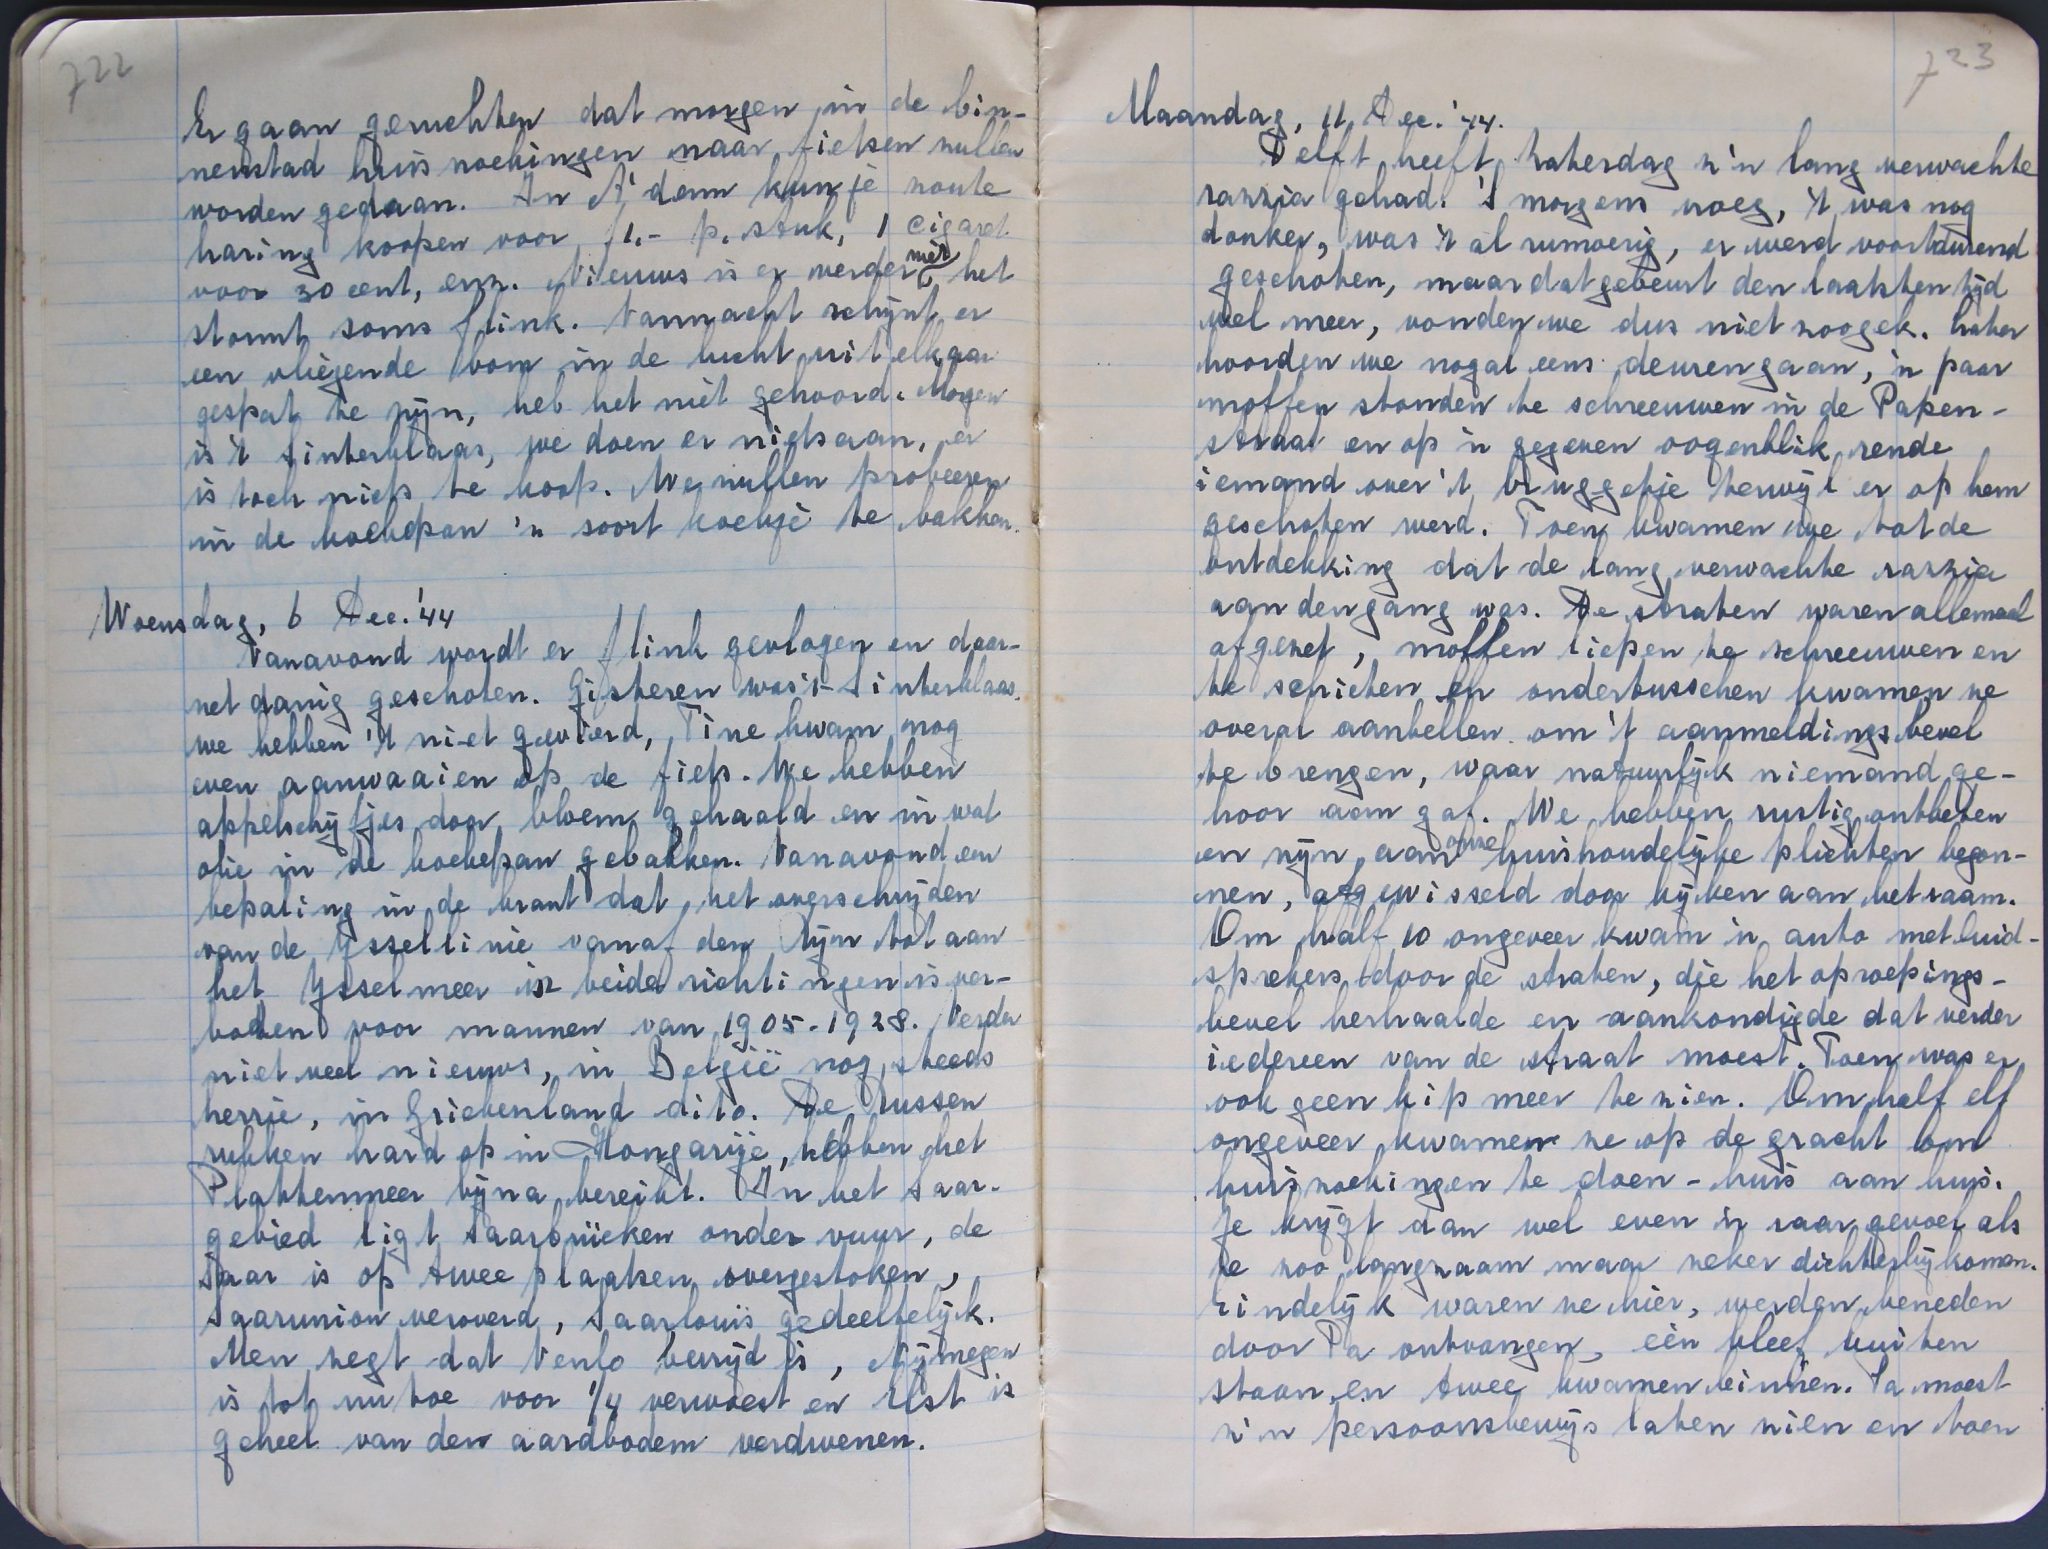 722
Er gaan geruchten dat morgen in de bin-
nenstad huiszoekingen naar fietsen zullen
worden gedaan. In A'dam kun je zoute
haring koopen voor f 1.- p. stuk, 1 cigaret
voor 30 cent, enz. Nieuws is er verder niet, het
stormt soms flink. Vannacht schijnt er
een vliegende bom in de lucht uit elkaar
gespat te zijn, heb het niet gehoord. Morgen
is 't Sinterklaas, we doen er niets aan, er
is toch niets te koop. We zullen probeeren
in de koekepan 'n soort koekje te bakken.
Woensdag, 6 Dec. '44
Vanavond wordt er flink gevlogen en daar-
net danig geschoten. Gisteren was 't Sinterklaas,
we hebben 't niet gevierd, Tine kwam nog
even aanwaaien op de fiets. We hebben
appelschijfjes door bloem gehaald en in wat
olie in de koekepan gebakken. Vanavond een
bepaling in de krant dat het overschrijden
van de IJssellinie vanaf den Rijn tot aan
het IJsselmeer in beide richtingen is ver-
boden voor mannen van 1905-1928. Verder
niet veel nieuws, in België nog steeds
herrie, in Griekenland dito. De Russen
rukken hard op in Hongarije, hebben het
Plattenmeer bijna bereikt. In het Saar-
gebied ligt Saarbrücken onder vuur, de
Saar is op twee plaatsen overgestoken,
Saarunion veroverd, Saarlouis gedeeltelijk.
Men zegt dat Venlo bevrijd is, Nijmegen
is tot nu toe voor 1/4 verwoest en Elst is
geheel van den aardbodem verdwenen.
723
Maandag, 11 Dec. '44.
Delft heeft Zaterdag z'n lang verwachte
razzia gehad. 's morgens vroeg, 't was nog
donker, was 't al rumoerig, er werd voortdurend
geschoten, maar dat gebeurt den laatsten tijd
wel meer, vonden we dus niet zoo gek. Later
hoorden we nogal eens deuren gaan, 'n paar
moffen stonden te schreeuwen in de Papen-
straat en op 'n gegeven oogenblik rende
iemand over 't bruggetje terwijl er op hem
geschoten werd. Toen kwamen we tot de
ontdekking dat de lang verwachte razzia
aan den gang was. De straten waren allemaal
afgezet, moffen liepen te schreeuwen en
te schieten en ondertusschen kwamen ze
overal aanbellen om 't aanmeldingsbevel
te brengen, waar natuurlijk niemand ge-
hoor aan gaf. We hebben rustig ontbeten
en zijn aan onze huishoudelijke plichten begon-
nen, afgewisseld door kijken aan het raam.
Om half 10 ongeveer kwam 'n auto met luid-
sprekers door de straten, die het oproepings-
bevel herhaalde en aankondigde dat verder
iedereen van de straat moest. Toen was er
ook geen kip meer te zien. Om half elf
ongeveer kwamen ze op de gracht om
huiszoekingen te doen - huis aan huis.
Je krijgt dan wel even 'n raar gevoel als
ze zoo langzaam maar zeker dichterbij komen.
Eindelijk waren ze hier, werden beneden
door Pa ontvangen, eén bleef buiten
staan en twee kwamen binnen. Pa moest
z'n persoonsbewijs laten zien en toen